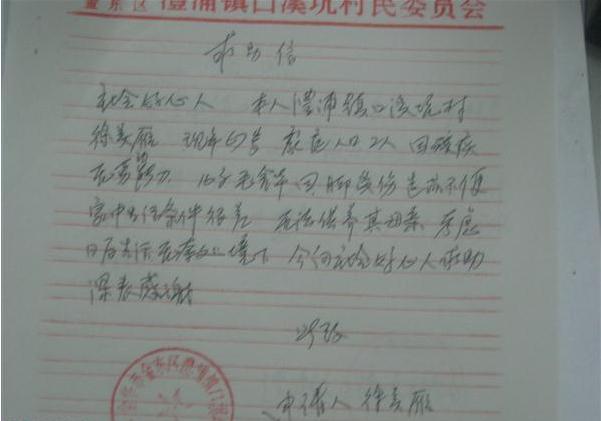 金东区 澧浦镇口溪坑村民委员会
求助信
社会好心人 本人澧浦镇口溪坑村
徐美雁 现年67岁 家庭人口2人 因残疾
无劳动力 因脚受伤 走路不便
家中生活条件很差 无法供养其母亲 考虑
日后生活 今向社会好心人求助
深表感谢
此致
申请人 徐美雁